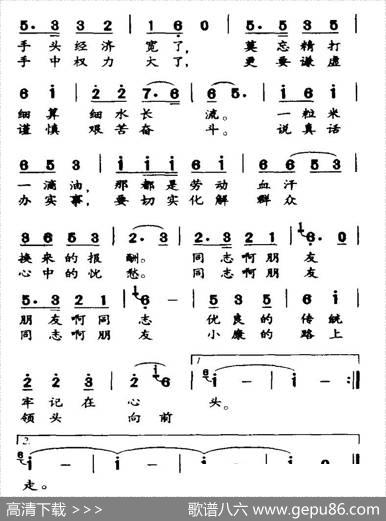 5. 3 3 2 | 1 6 0 | 5. 3 3 2 |
手头经济 宽了， 莫忘精打
手中权力 大了， 更要谦虚
6 1 | 2 2 7. 6 | 6 5. | 1 6 1 |
细算 细水长 流。 一粒米
谨慎 艰苦奋 斗。 说真话
6 5 3 | 1 1 1 6 1 | 6 6 5 3 |
一滴油， 那都是劳动 血汗
办实事， 要切实化解 群众
3 6 5 3 | 2. 3 | 2. 3 2 1 | 6. 0 |
换来的报 酬。 同志啊朋 友
心中的忧 愁。 同志啊朋 友
5. 3 2 1 | 6 － | 5 3 5 | 6 1 |
朋友啊同 志 优良的 传统
同志啊朋 友 小康的 路上
1.
2 2 3 | 2 6 | 1 － | 1 － :||
牢记在 心 头。
领头 向前
2.
6 1 － | 1 － | 1 － | 1 － ||
走。
高清下载 >>> 歌谱八六 www.gepu86.com